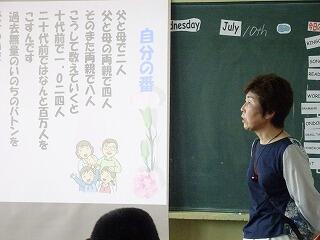 自分の番
父と母で二人
父と母の両親で四人
そのまた両親で八人
こうして数えていくと
十代前で一、〇二四人
二十代前ではなんと百万人を
こすんです
過去無量のいのちのバトンを
Wednesday
July
10th
SONG
READ
WORD